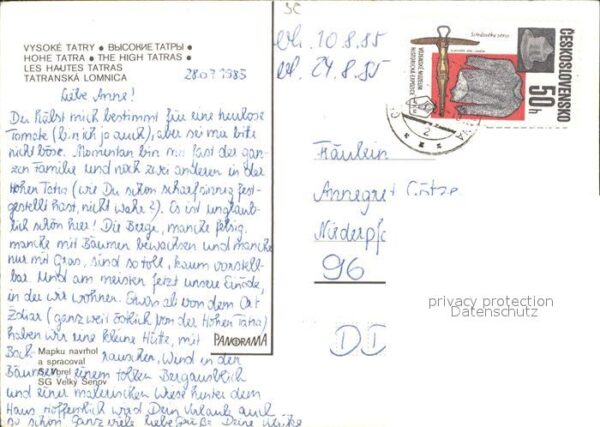 VYSOKÉ TATRY • ВЫСОКИЕ ТАТРЫ •
HOHE TATRA • THE HIGH TATRAS •
LES HAUTES TATRAS
TATRANSKÁ LOMNICA
28.07.1985
Liebe Anne!
Du hälst mich bestimmt für eine treulose
Tomate (bin ich ja auch), aber sei mir bitte
nicht böse. Momentan bin ich mit fast der gan-
zen Familie und noch zwei anderen in der
Hohen Tatra (wie Du schon scharfsinnig fest-
gestellt hast, nicht wahr?). Es ist unglaub-
lich schön hier! Die Berge, manche felsig,
manche mit Bäumen bewachsen und manche
nur mit Gras, sind so toll, kaum vorstell-
bar. Und am meisten fetzt unsere Einöde,
in der wir wohnen. Etwas ab von dem Ort
Ždiar (ganz weit östlich von der Hohen Tatra)
haben wir eine kleine Hütte, mit
Bach rauschen, Wind in den
Bäumen, einem tollen Bergausblick
und einer malerischen Wiese hinter dem
Haus. Hoffentlich wird Dein Urlaub auch
so schön. Ganz viele liebe Grüße Deine Ulrike
Mapku navrhol
a spracoval
S. Vorel
SG Velký Šenov
PANORAMA
10.8.85
24.8.85
ČESKOSLOVENSKO
50h
2
Fräulein
Annegret Götze
Niederpf
96
DD
privacy protection
Datenschutz